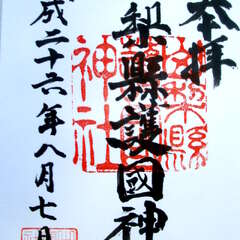 奉拝
梨縣護國神
成二十六年八月七日
山梨縣
神社